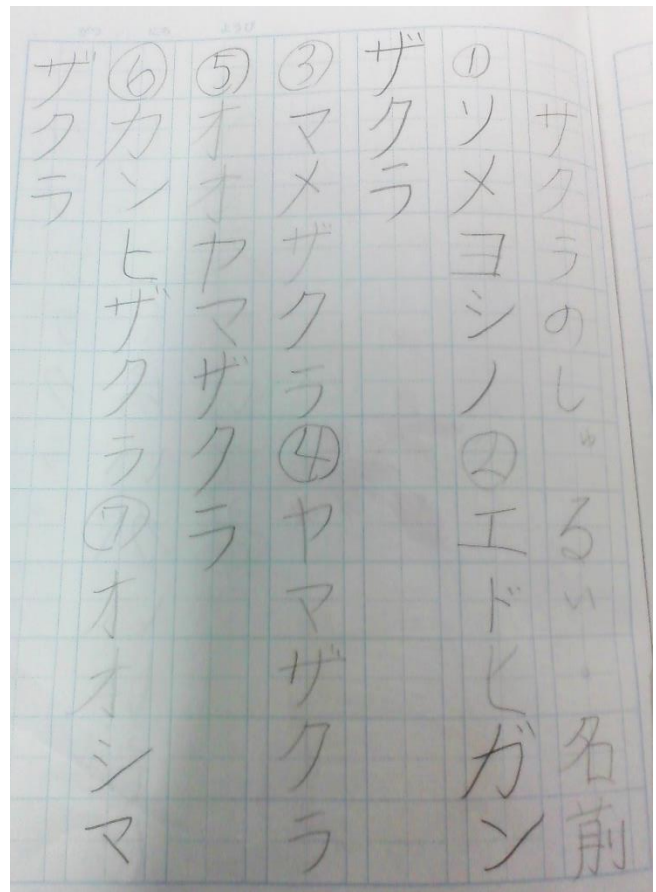 サクラのしゅるい・名前
①ソメヨシノ②エドヒガン
ザクラ
③マメザクラ④ヤマザクラ
⑤オオヤマザクラ
⑥カンヒザクラ⑦オオシマ
ザクラ